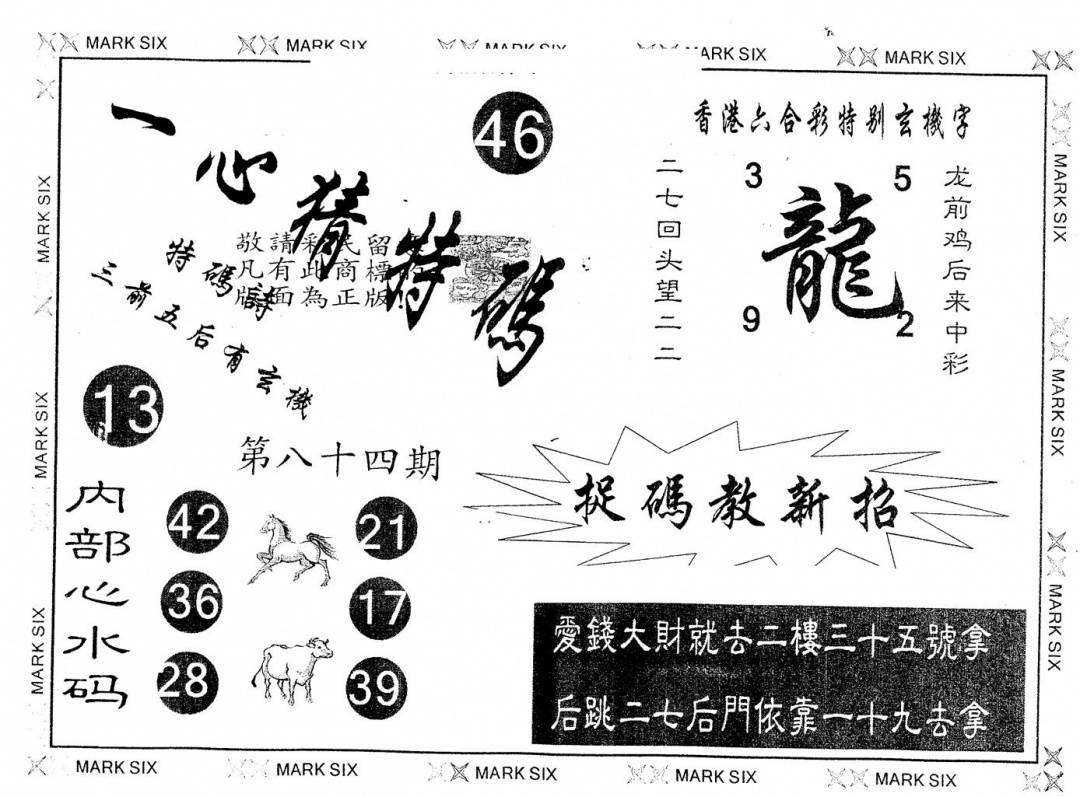 MARK SIX MARK SIX MARK SIX MARK SIX MARK SIX
一心猜特碼
46
敬請彩民留
凡有此商標
版面為正版!
特碼詩
三前五后有玄機
13
第八十四期
内部心水码
42 21
36 17
28 39
香港六合彩特别玄機字
二七回头望二二
3 5
龍
9 2
龙前鸡后来中彩
捉碼教新招
愛錢大財就去二樓三十五號拿
后跳二七后門依靠一十九去拿
MARK SIX
MARK SIX
MARK SIX
MARK SIX
MARK SIX
MARK SIX
MARK SIX MARK SIX MARK SIX MARK SIX MARK SIX